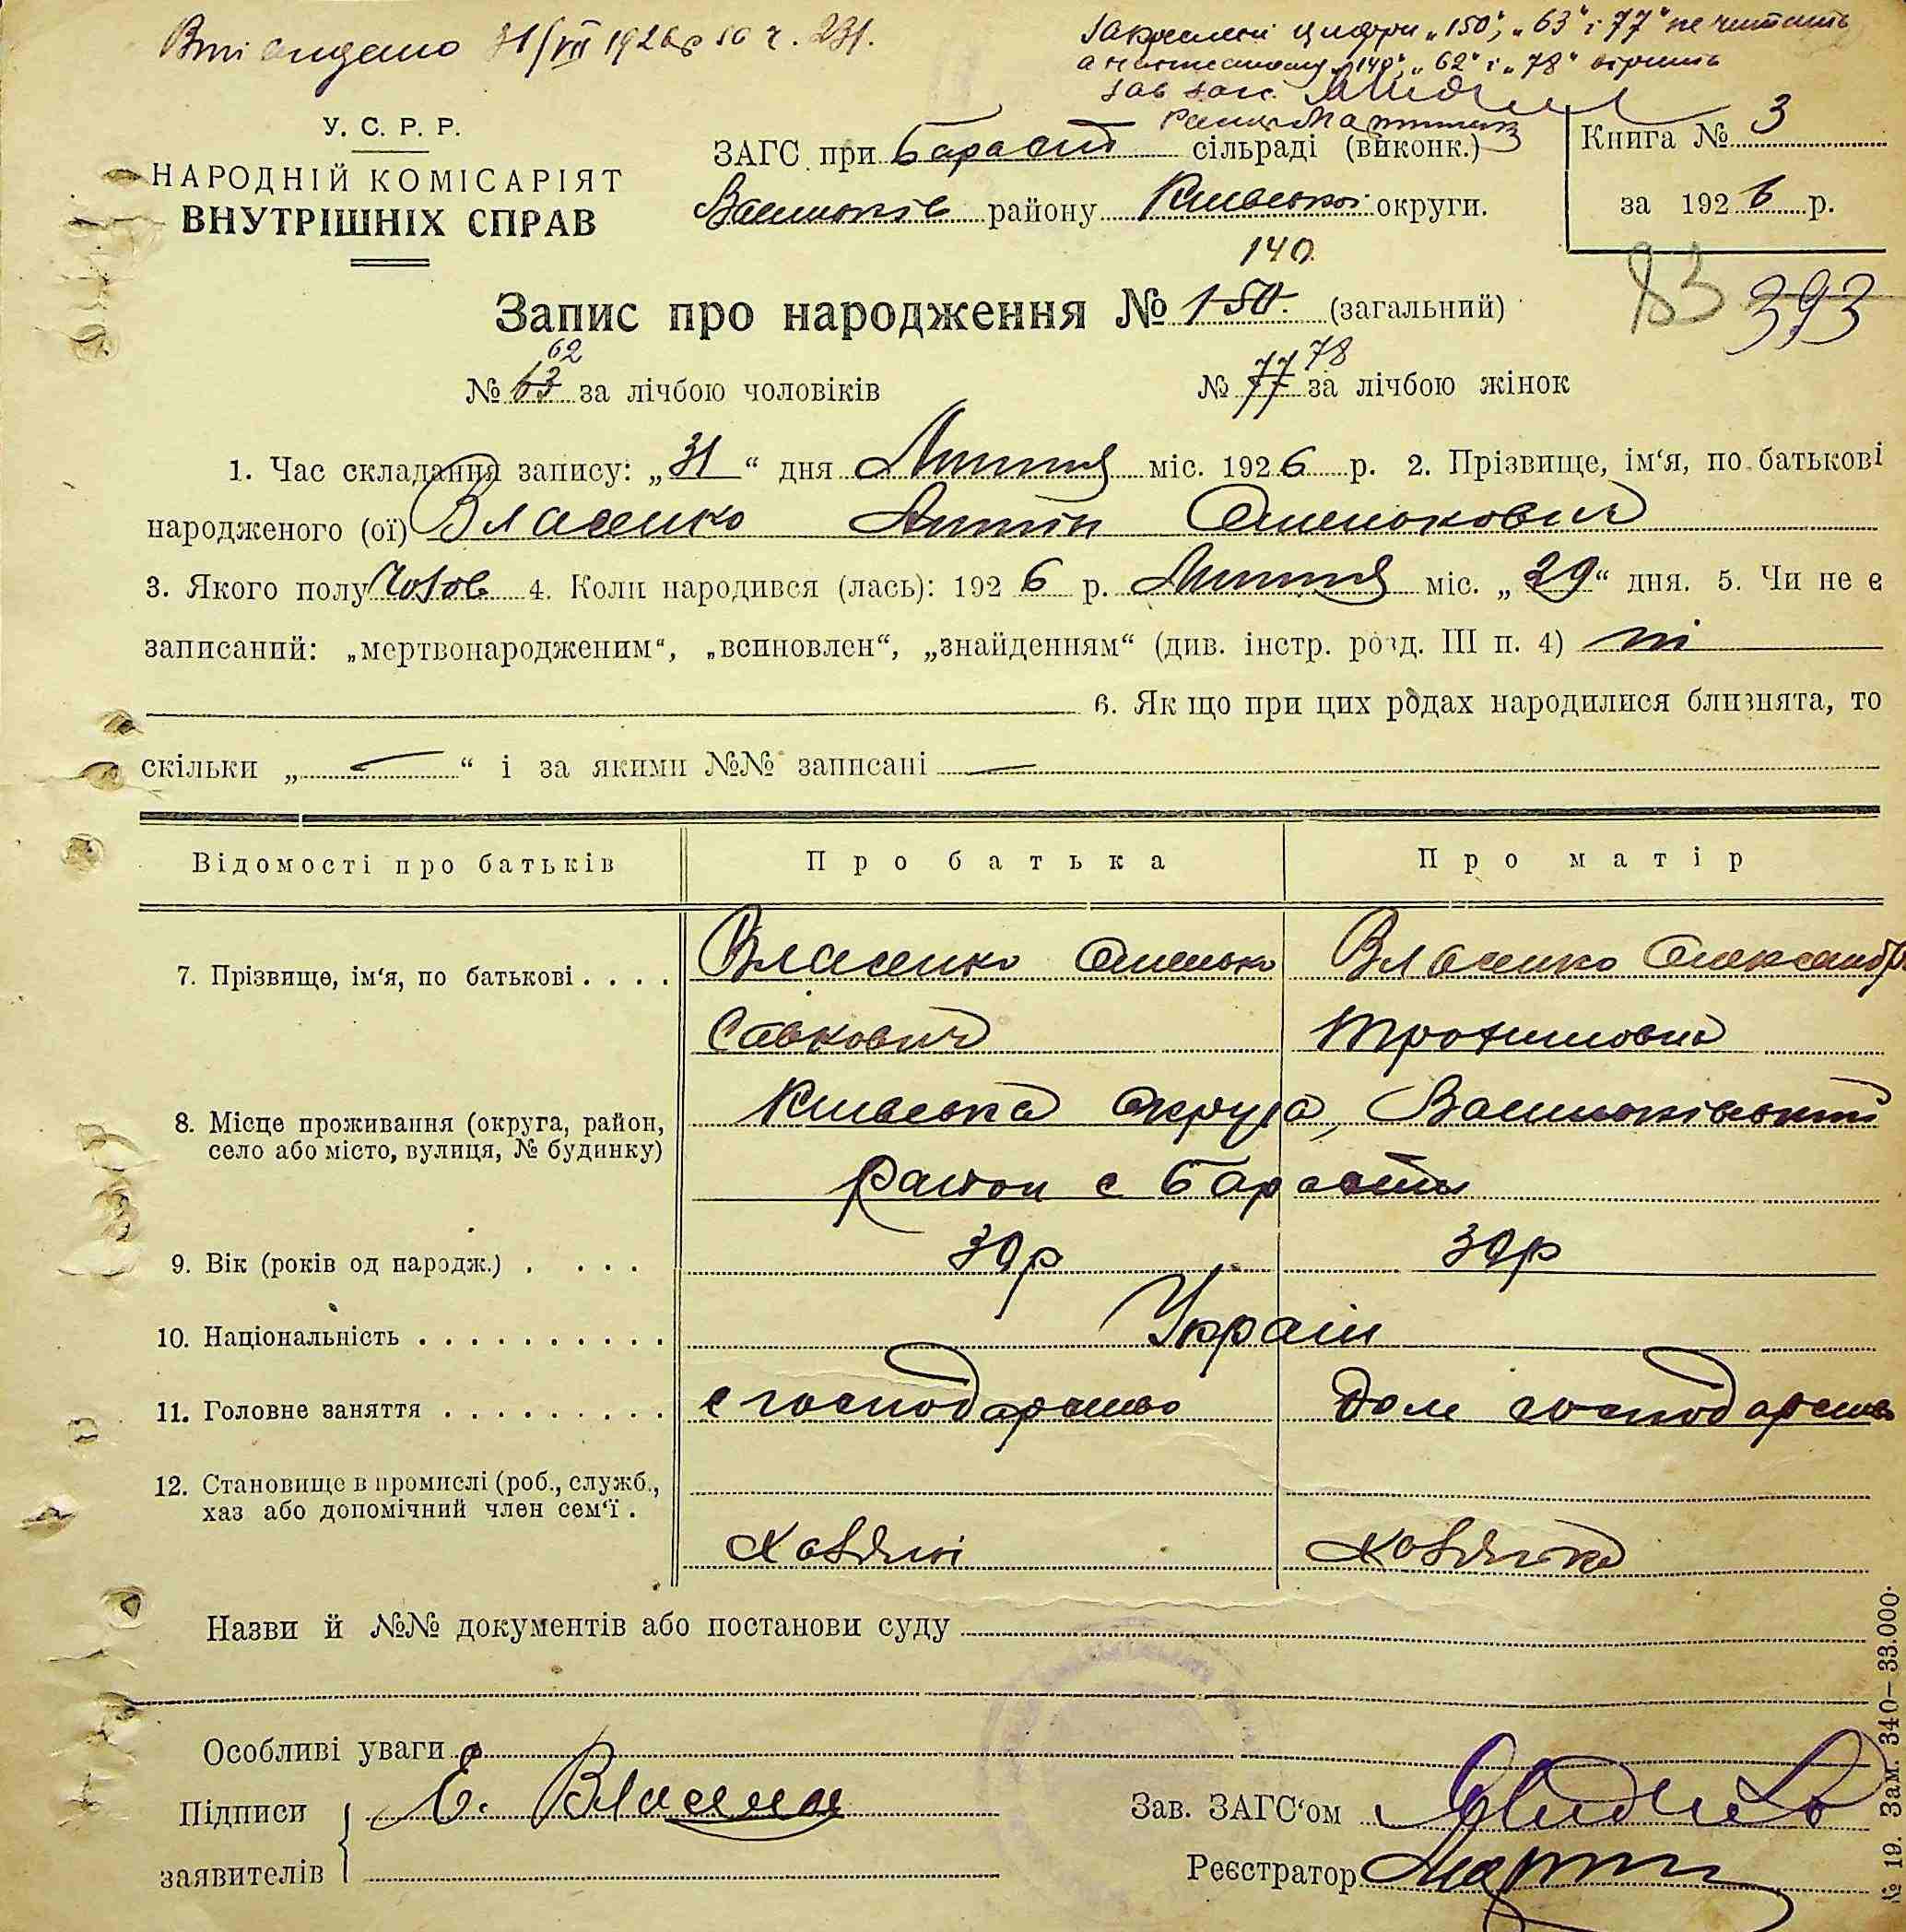 31/VII 1926 р
Закреслені цифри „150", „63" і 77" не читать
а „140", „62" і „78" вірить
Зав загс
У. С. Р. Р.
НАРОДНІЙ КОМІСАРІЯТ
ВНУТРІШНІХ СПРАВ
ЗАГС при Барахт сільраді (виконк.)
Васильків району Київської округи.
Книга № 3
за 1926 р.
140
Запис про народження № 150. (загальний)
83 393
62 77 78
№ 63 за лічбою чоловіків № 77 за лічбою жінок
1. Час складання запису: „31" дня Липня міс. 1926 р. 2. Прізвище, ім'я, по батькові
народженого (ої) Власенко Антін
3. Якого полу Чолов 4. Коли народився (лась): 1926 р. Липня міс. „29" дня. 5. Чи не є
записаний: „мертвонародженим", „всиновлен", „знайденням" (див. інстр. розд. III п. 4) ні
6. Як що при цих родах народилися близнята, то
скільки „ — " і за якими №№ записані —
Відомості про батьків Про батька Про матір
7. Прізвище, ім'я, по батькові . . . . Власенко Власенко Олександра
Савкович Трохимовна
8. Місце проживання (округа, район, село або місто, вулиця, № будинку) Київська округа, Васильківський
район с Барахти
9. Вік (років од народж.) . . . . 30р 30р
10. Національність . . . . . . . . . . . Україн
11. Головне заняття . . . . . . . . . . с господарство Дом господарство
12. Становище в промислі (роб., служб.,
хаз або допомічний член сем'ї .
Хазяїн Хазяйка
Назви й №№ документів або постанови суду
Особливі уваги
Підписи
заявителів
Зав. ЗАГС'ом
Реєстратор
№ 19. Зам. 340—33.000.